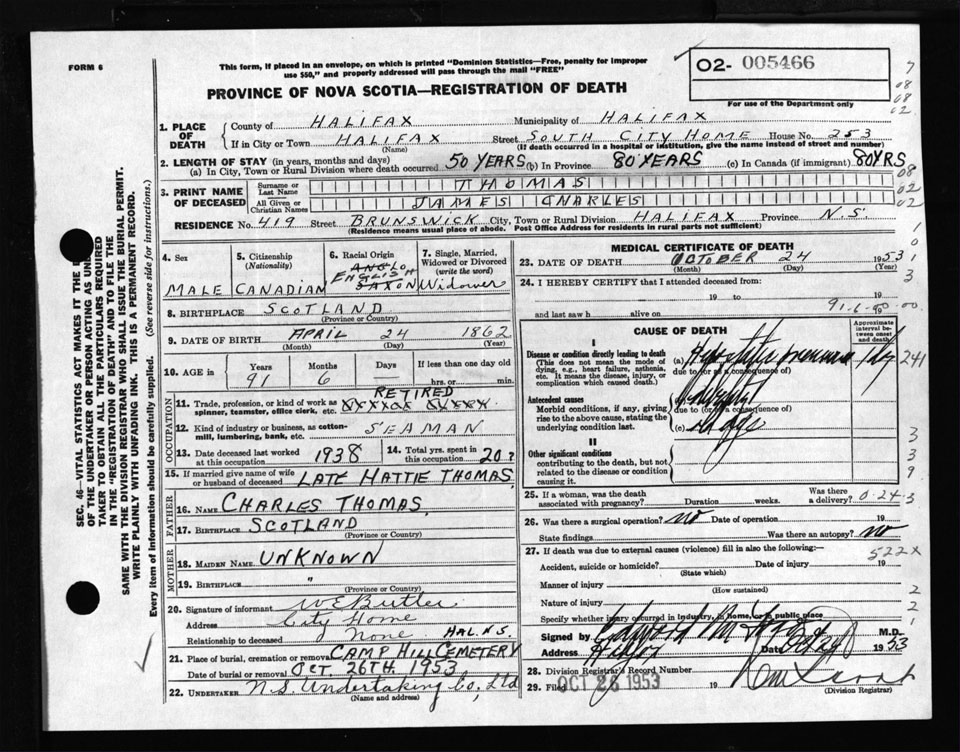 FORM 6
This form, if placed in an envelope, on which is printed "Dominion Statistics—Free, penalty for improper
use $50," and properly addressed will pass through the mail "FREE"
02- 005466
For use of the Department only
PROVINCE OF NOVA SCOTIA—REGISTRATION OF DEATH
1. PLACE OF DEATH
County of HALIFAX Municipality of HALIFAX
If in City or Town HALIFAX Street SOUTH CITY HOME House No. 253
(Name) (If death occurred in a hospital or institution, give the name instead of street and number)
2. LENGTH OF STAY (in years, months and days)
(a) In City, Town or Rural Division where death occurred 50 YEARS (b) In Province 80 YEARS (c) In Canada (if immigrant) 80 YRS
3. PRINT NAME OF DECEASED
Surname or Last Name THOMAS
All Given or Christian Names JAMES CHARLES
RESIDENCE No. 419 Street BRUNSWICK City, Town or Rural Division HALIFAX Province N.S.
(Residence means usual place of abode. Post Office Address for residents in rural parts not sufficient)
4. Sex MALE
5. Citizenship (Nationality) CANADIAN
6. Racial Origin ANGLO ENGLISH SAXON
7. Single, Married, Widowed or Divorced (write the word) Widower
8. BIRTHPLACE SCOTLAND
(Province or Country)
9. DATE OF BIRTH APRIL 24 1862
(Month) (Day) (Year)
10. AGE in Years 91 Months 6 Days If less than one day old hrs. or min.
OCCUPATION
11. Trade, profession, or kind of work as spinner, teamster, office clerk, etc. RETIRED
12. Kind of industry or business, as cotton-mill, lumbering, bank, etc. SEAMAN
13. Date deceased last worked at this occupation 1938
14. Total yrs. spent in this occupation 20?
15. If married give name of wife or husband of deceased LATE HATTIE THOMAS
FATHER
16. NAME CHARLES THOMAS,
17. BIRTHPLACE SCOTLAND
(Province or Country)
MOTHER
18. MAIDEN NAME UNKNOWN
19. BIRTHPLACE "
(Province or Country)
20. Signature of informant W E Butler
Address City Home
Relationship to deceased None HAL. N.S.
21. Place of burial, cremation or removal CAMP HILL CEMETERY
Date of burial or removal OCT. 26TH 1953
22. UNDERTAKER N.S. Undertaking Co., Ltd
(Name and address)
MEDICAL CERTIFICATE OF DEATH
23. DATE OF DEATH OCTOBER 24 1953
(Month) (Day)
24. I HEREBY CERTIFY that I attended deceased from:
19 to 19
and last saw h alive on 19
91-6-00-00
CAUSE OF DEATH
Approximate interval between onset and death
I
Disease or condition directly leading to death
(This does not mean the mode of dying, e.g., heart failure, asthenia, etc. It means the disease, injury, or complication which caused death.)
(a) due to (or as a consequence of)
241
Antecedent causes
Morbid conditions, if any, giving rise to the above cause, stating the underlying condition last.
due to (or as a consequence of)
(c)
II
Other significant conditions
contributing to the death, but not related to the disease or condition causing it.
25. If a woman, was the death associated with pregnancy? Duration weeks. Was there a delivery? 0-24-3
26. Was there a surgical operation? no Date of operation 19
State findings Was there an autopsy? no
27. If death was due to external causes (violence) fill in also the following:— 522x
Accident, suicide or homicide? Date of injury 19
(State which)
Manner of injury
(How sustained)
Nature of injury
Specify whether injury occurred in industry, in home, or in public place
Signed by M.D.
Address Date 1953
28. Division Registrar's Record Number
29. Filed OCT 26 1953 19
(Division Registrar)
SEC. 46—VITAL STATISTICS ACT MAKES IT THE
OF THE UNDERTAKER OR PERSON ACTING AS
TAKER TO OBTAIN ALL THE PARTICULARS REQUIRED
IN THE "REGISTRATION OF DEATH" AND TO FILE THE
SAME WITH THE DIVISION REGISTRAR WHO SHALL ISSUE THE BURIAL PERMIT.
WRITE PLAINLY WITH UNFADING INK. THIS IS A PERMANENT RECORD.
Every item of information should be carefully supplied. (See reverse side for instructions.)